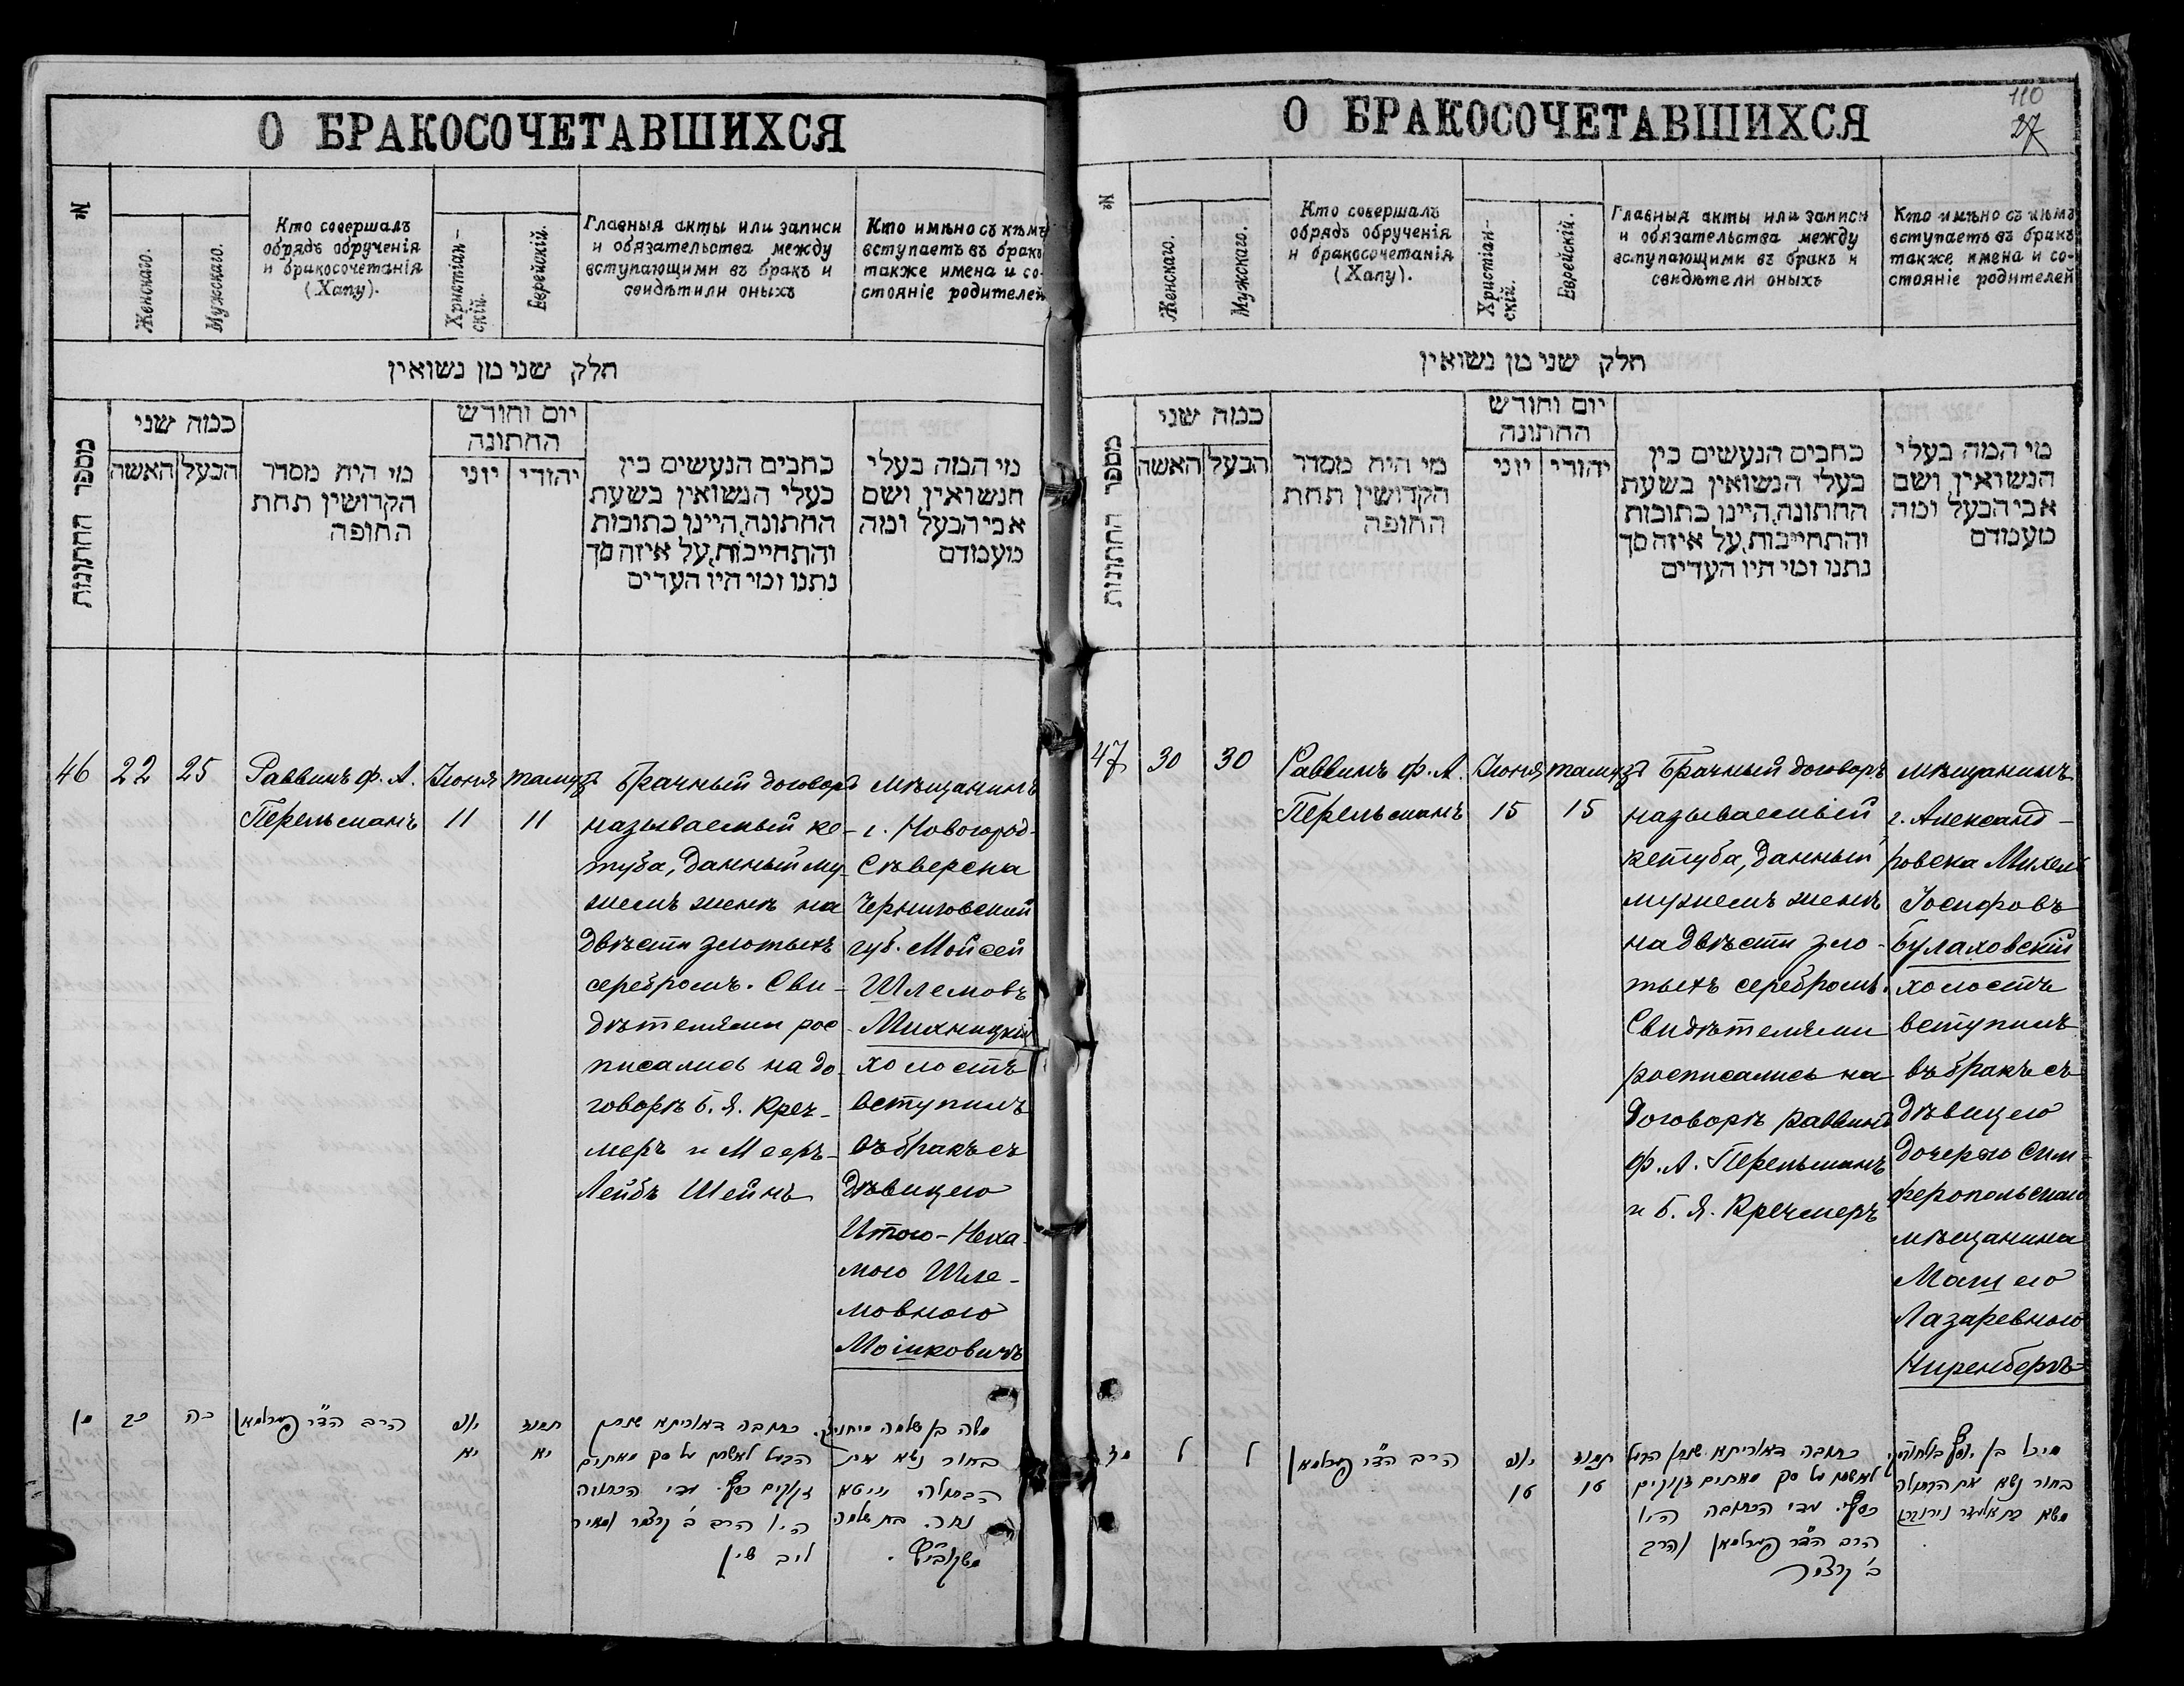 О БРАКОСОЧЕТАВШИХСЯ
№
Женскаго.
Мужскаго.
Кто совершалъ
обрядъ обрученія
и бракосочетанія
(Хапу).
Христіан-
скій.
Еврейскій.
Главныя акты или записи
и обязательства между
вступающими въ бракъ и
свидѣтили оныхъ
Кто имѣно съ кѣмъ
вступаетъ въ бракъ
также имена и со-
стояніе родителей
חלק שני מן נשואין
מספר החתונות
כמה שני
האשה
הבעל
מי היה מסדר
הקדושין תחת
החופה
יום וחורש
החתונה
יוני
יהודי
כתבים הנעשים בין
בעלי הנשואין בשעת
החתונה, היינו כתובות
והתחייבות, על איזה סך
נתנו ומי היו העדים
מי המה בעלי
הנשואין ושם
אבי הבעל ומה
מעמדם
46
22
25
Раввинъ Ф. А.
Перельманъ
Іюня
11
тамузъ
11
Брачный договоръ
называемый ке-
туба, данный му-
жемъ женѣ на
двѣсти злотыхъ
серебромъ. Сви-
дѣтелями рос-
писались на до-
говорѣ Б. Я. Креч-
меръ и Мееръ-
Лейбъ Шейнъ
мѣщанинъ
г. Новогород-
Сѣверска
Черниговской
губ. Мойсей
Шлемовъ
Михницкій
холостъ
вступилъ
въ бракъ съ
дѣвицею
Итою-Неха-
мою Шле-
мовною
Мошковичъ
כב
כה
הרב הד״ר פערלמאן
יוני
יא
תמוז
יא
כתובה דאורייתא שנתן
הבעל לאשתו על סך מאתים
זקוקים כסף. עדי הכתובה
היו הרב ב׳ קרצמר ומאיר
ליב שיין
משה בן שלמה מיחניצקי
בחור נשא את
הבתולה איטא
נחמה בת שלמה
משקוביץ.
О БРАКОСОЧЕТАВШИХСЯ
110
27
№
Женскаго.
Мужскаго.
Кто совершалъ
обрядъ обрученія
и бракосочетанія
(Хапу).
Христіан-
скій.
Еврейскій.
Главныя акты или записи
и обязательства между
вступающими въ бракъ и
свидѣтели оныхъ
Кто имѣно съ кѣмъ
вступаетъ въ бракъ
также имена и со-
стояніе родителей
חלק שני מן נשואין
מספר החתונות
כמה שני
האשה
הבעל
מי היה מסדר
הקדושין תחת
החופה
יום וחורש
החתונה
יוני
יהודי
כתבים הנעשים בין
בעלי הנשואין בשעת
החתונה, היינו כתובות
והתחייבות, על איזה סך
נתנו ומי היו העדים
מי המה בעלי
הנשואין ושם
אבי הבעל ומה
מעמדם
47
30
30
Раввинъ Ф. А.
Перельманъ
Іюня
15
тамузъ
15
Брачный договоръ
называемый
кетуба, данный
мужемъ женѣ
на двѣсти зло-
тыхъ серебромъ.
Свидѣтелями
росписались на
договорѣ раввинъ
Ф. А. Перельманъ
и Б. Я. Кречмеръ
мѣщанинъ
г. Александ-
ровска Михель
Іосифовъ
Булаховскій
холостъ
вступилъ
въ бракъ съ
дѣвицею
дочерью Сим-
феропольскаго
мѣщанина
Машею
Лазаревною
Ниренбергъ
מז
ל
ל
הרב הד״ר פערלמאן
יוני
טו
תמוז
טו
כתובה דאורייתא שנתן הבעל
לאשתו על סך מאתים זקוקים
כסף. עדי הכתובה היו
הרב הד״ר פערלמאן והרב
ב׳ קרצמר
מיכל בן יוסף בולחובסקי
בחור נשא את הבתולה
מאשא בת אלעזר נירנברג